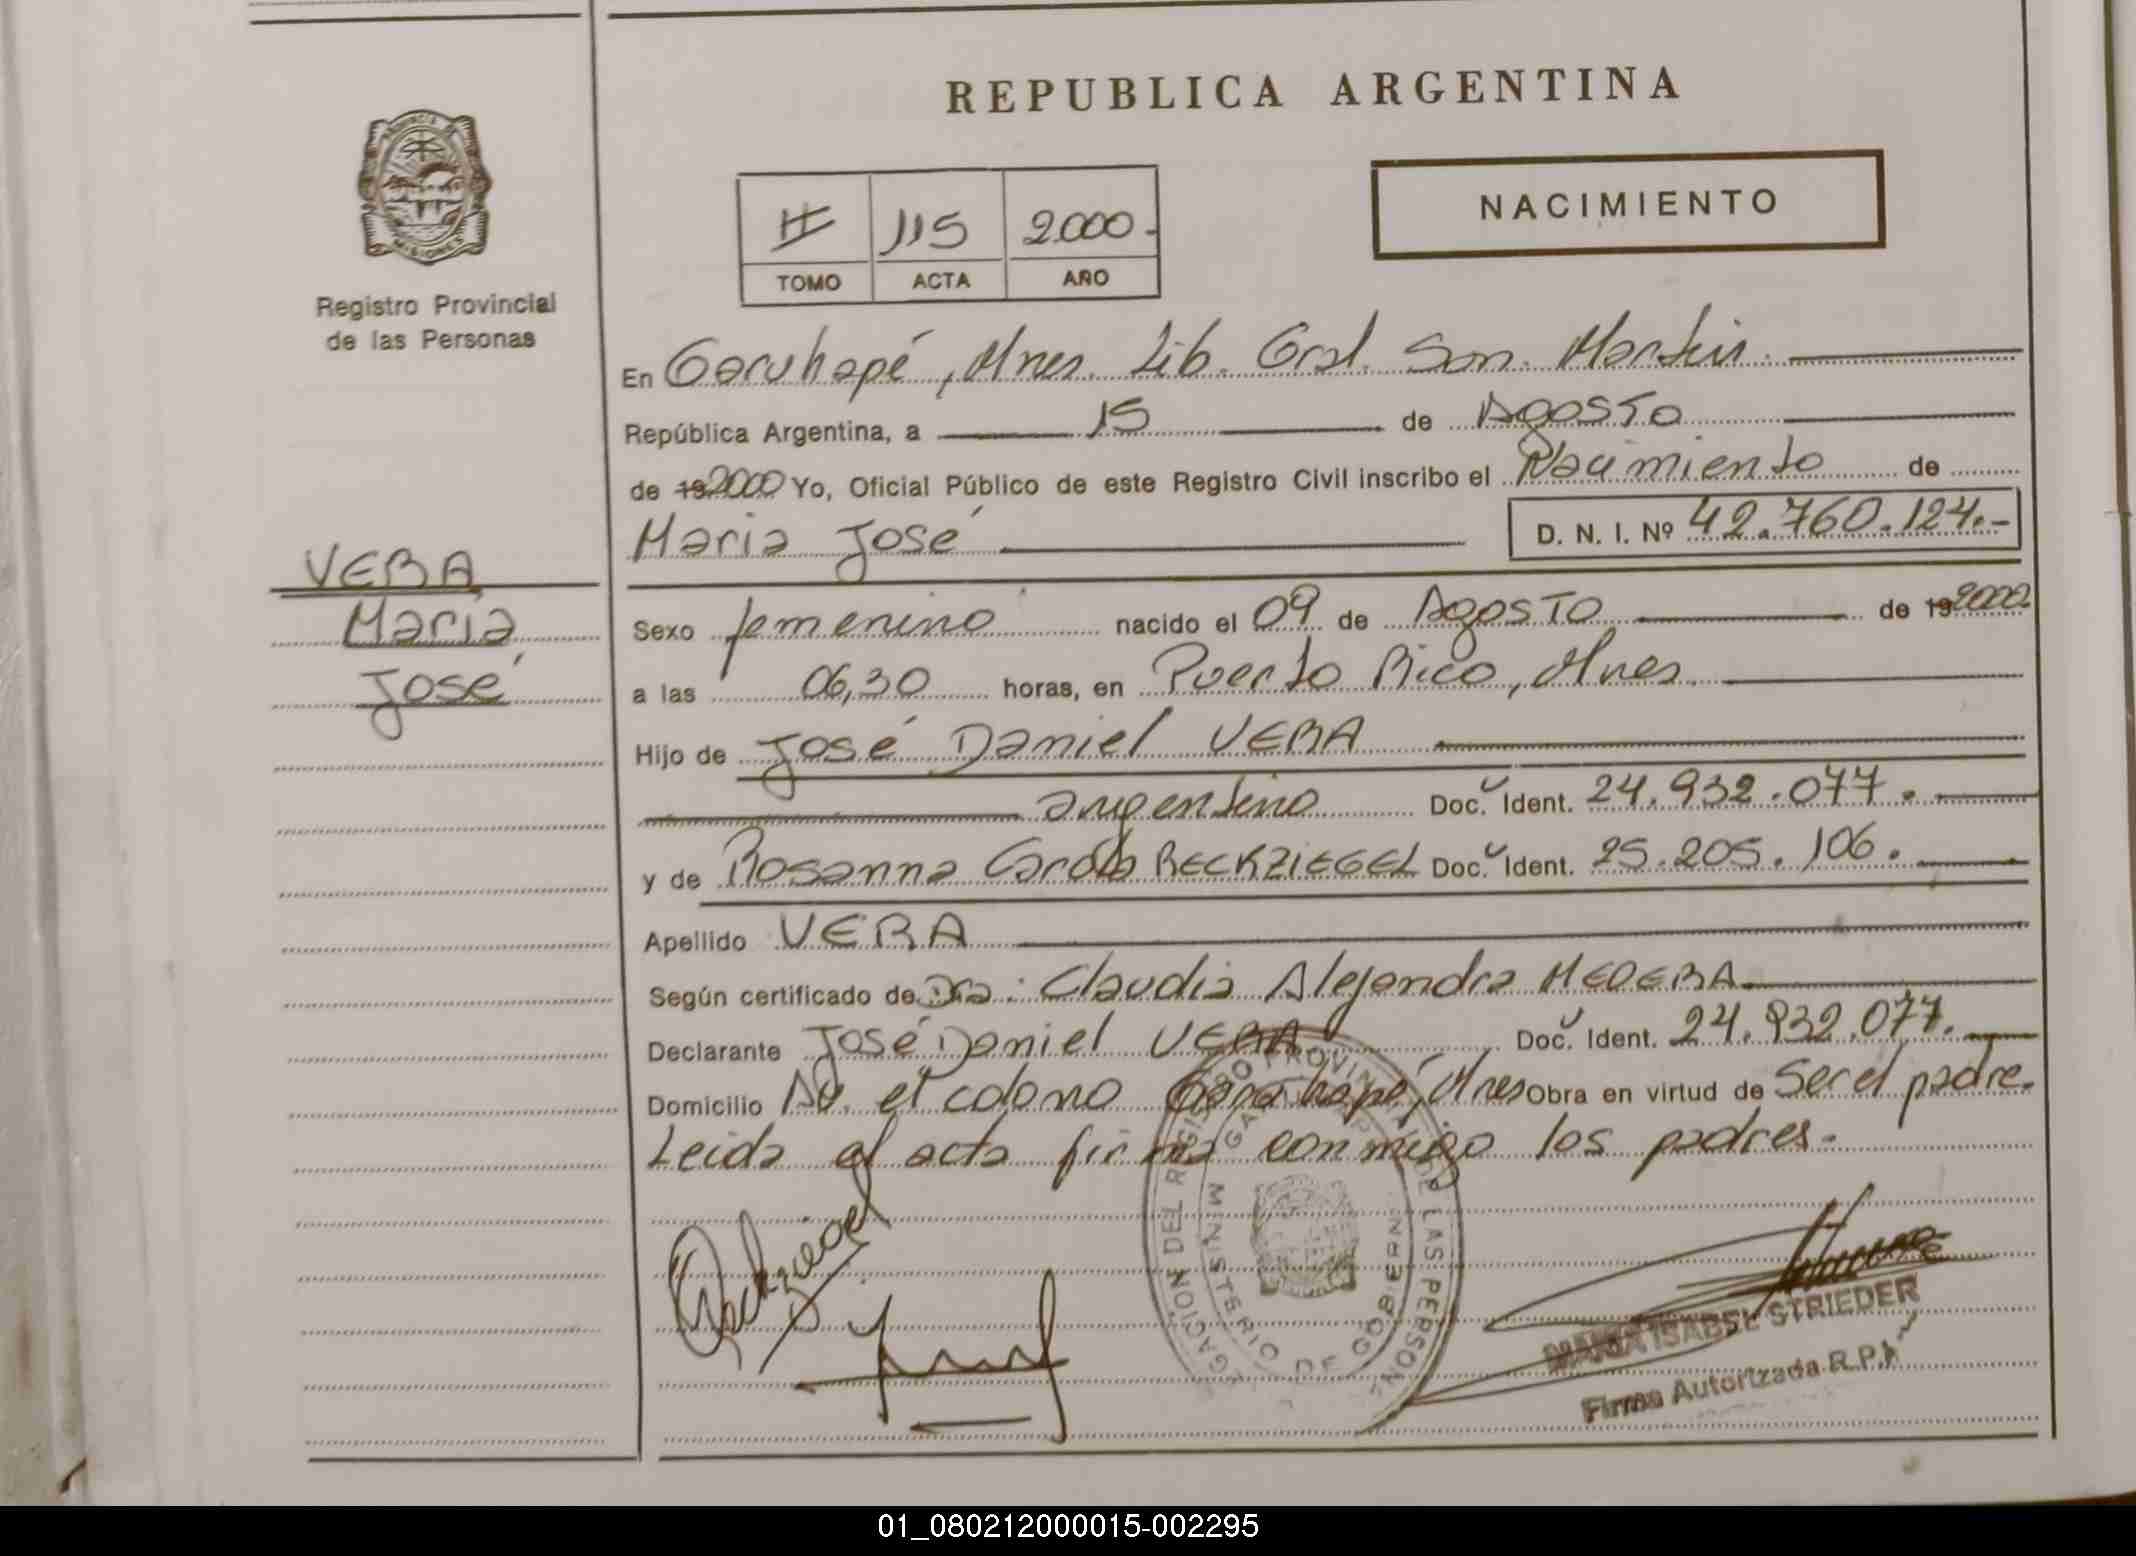 REPUBLICA ARGENTINA
PROVINCIA DE
MISIONES
Registro Provincial
de las Personas
NACIMIENTO
II 115 2.000.-
TOMO ACTA AÑO
En Garuhapé, Mnes. Lib. Gral. San. Martín.
República Argentina, a 15 de Agosto
de 192000 Yo, Oficial Público de este Registro Civil inscribo el Nacimiento de
María José
D. N. I. Nº 42.760.124.-
VERA
María
José
Sexo femenino nacido el 09 de Agosto de 192000
a las 06,30 horas, en Puerto Rico, Mnes.
Hijo de José Daniel VERA
argentino Doc. Ident. 24.932.077.
y de Rosanna Carola RECKZIEGEL Doc. Ident. 25.205.106.
Apellido VERA
Según certificado de Dra: Claudia Alejandra MEDERA
Declarante José Daniel VERA Doc. Ident. 24.932.077.
Domicilio Av. el colono Garuhapé, Mnes Obra en virtud de Ser el padre.
Leida el acta firma conmigo los padres.-
Reckziegel
DELEGACION DEL REGISTRO PROVINCIAL DE LAS PERSONAS
MINISTERIO DE GOBIERNO
MARIA ISABEL STRIEDER
Firma Autorizada R.P.P.
01_080212000015-002295